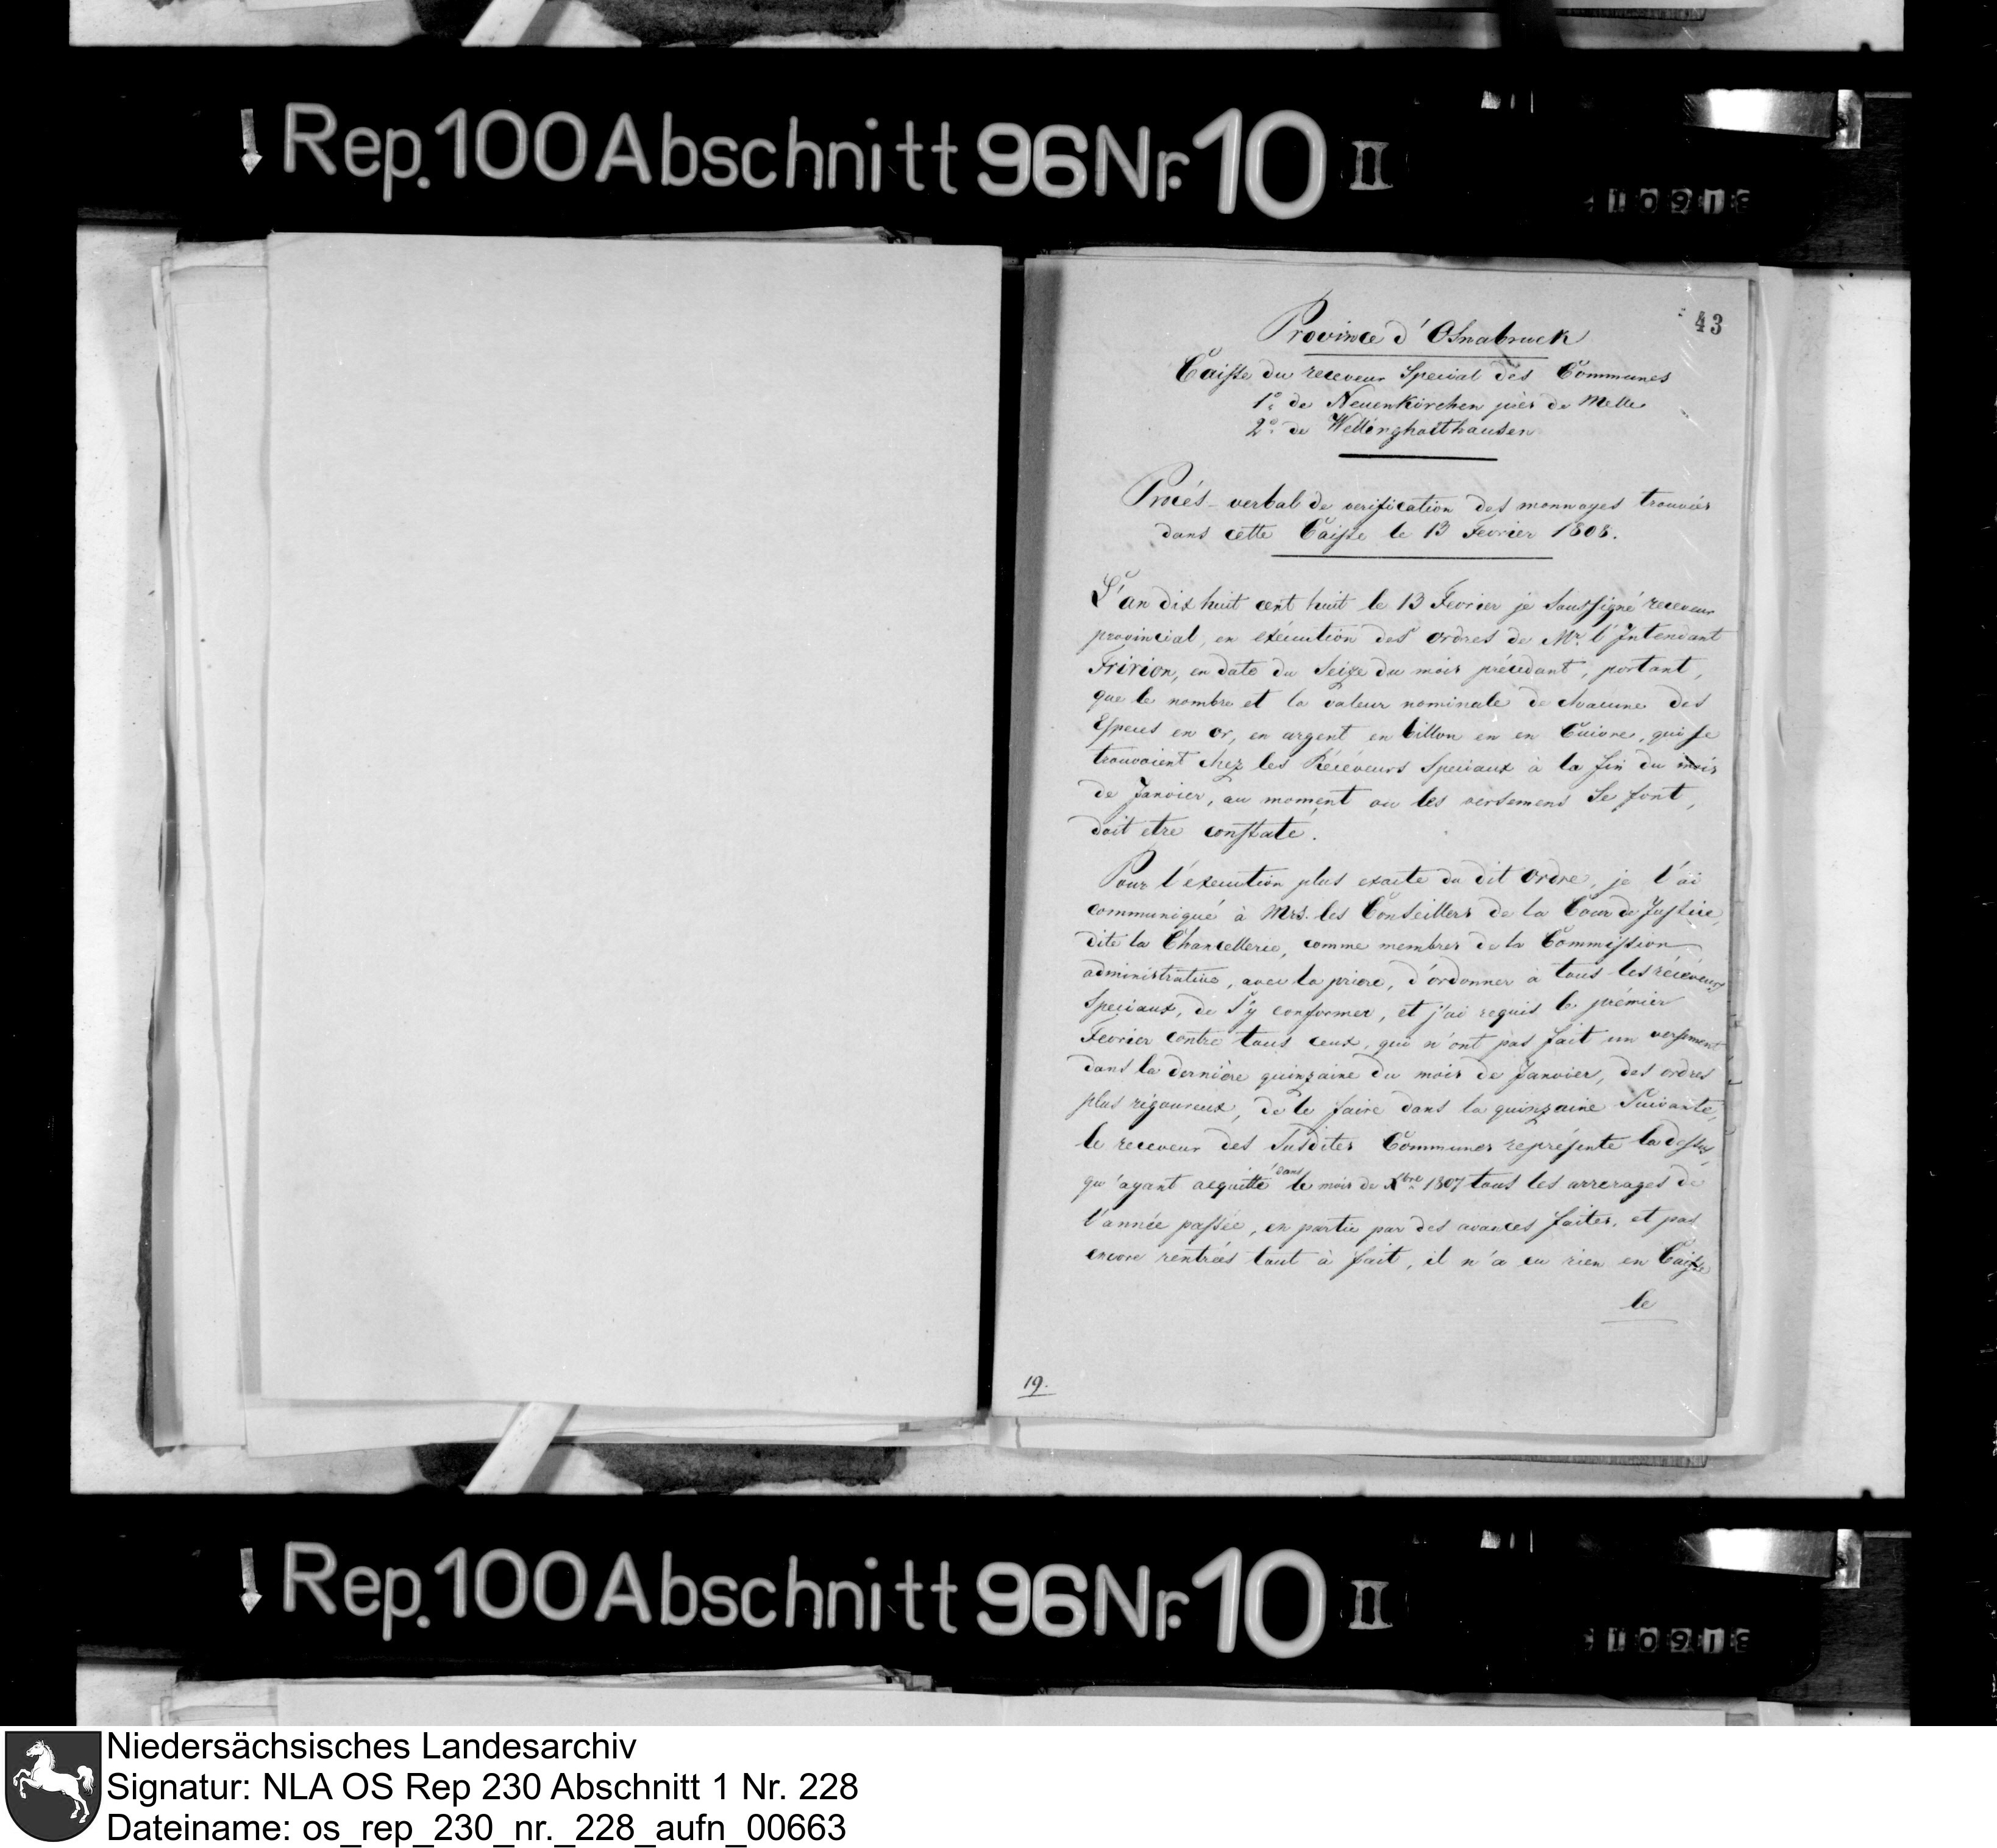 Rep. 100 Abschnitt 96 Nr. 10 II
10918
43
Province d'Osnabruck
Caisse du receveur Special des Communes
1º de Neuenkirchen près de Melle
2º de Wellingholthausen
Procés-verbal de verification des monnoyes trouvées
dans cette Caisse le 13 Fevrier 1808.
L'an dix huit cent huit le 13 Fevrier je Soussigné receveur
provincial, en exécution des ordres de Mr. l'Intendant
Fririon, en date du Seize du mois précedant, portant,
que le nombre et la valeur nominale de chacune des
Especes en or, en argent en billon en en Cuivre, qui se
trouvoient chez les Récéveurs Speciaux à la fin du mois
de Janvier, au moment ou les versemens Se font,
doit etre constaté.
Pour l'execution plus exacte du dit Ordre, je l'ai
communiqué à Mrs. les Conseillers de la Cour de Justice,
dite la Chancellerie, comme membres de la Commission
administrative, avec la priere, d'ordonner à tous les récéveurs
Speciaux, de S'y conformer, et j'ai requis le prémier
Fevrier contre tous ceux, qui n'ont pas fait un versement
dans la derniére quinzaine du mois de Janvier, des ordres
plus rigoureux, de le faire dans la quinzaine Suivante,
le receveur des Susdites Communes représente la dessus,
qu'ayant acquitté dans le mois de Xbre 1807 tous les arrerages de
l'année passée, en partie par des avances faites, et pas
encore rentrées tout à fait, il n'a eu rien en Caisse
le
19.
Rep. 100 Abschnitt 96 Nr. 10 II
10918
Niedersächsisches Landesarchiv
Signatur: NLA OS Rep 230 Abschnitt 1 Nr. 228
Dateiname: os_rep_230_nr._228_aufn_00663